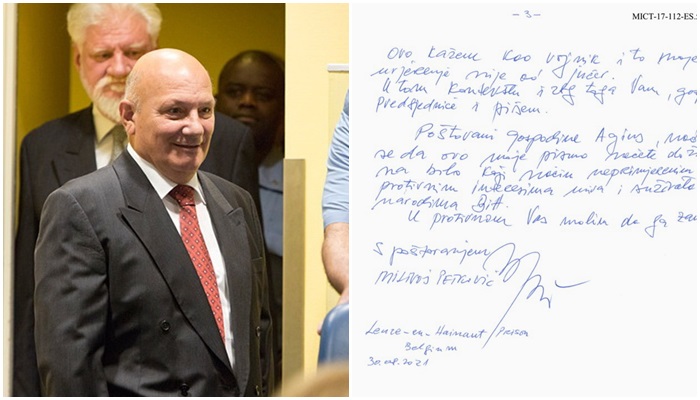 - 3 -
MICT-17-112-ES.
Ovo kažem kao vojnik i to moje
uvjerenje nije od jučer.
U tom kontekstu i zbog toga Vam, go
Predsjedniče i pišem.
Poštovani gospodine Agius,
se da ovo moje pismo nećete
na bilo koji način neprimjerenim
protivnim interesima mira i
narodima BiH.
U protivnom Vas molim da ga
S poštovanjem
MILIVOJ PETKOVIĆ
Leuze-en-Hainaut / Prison
Belgium
30.08.2021